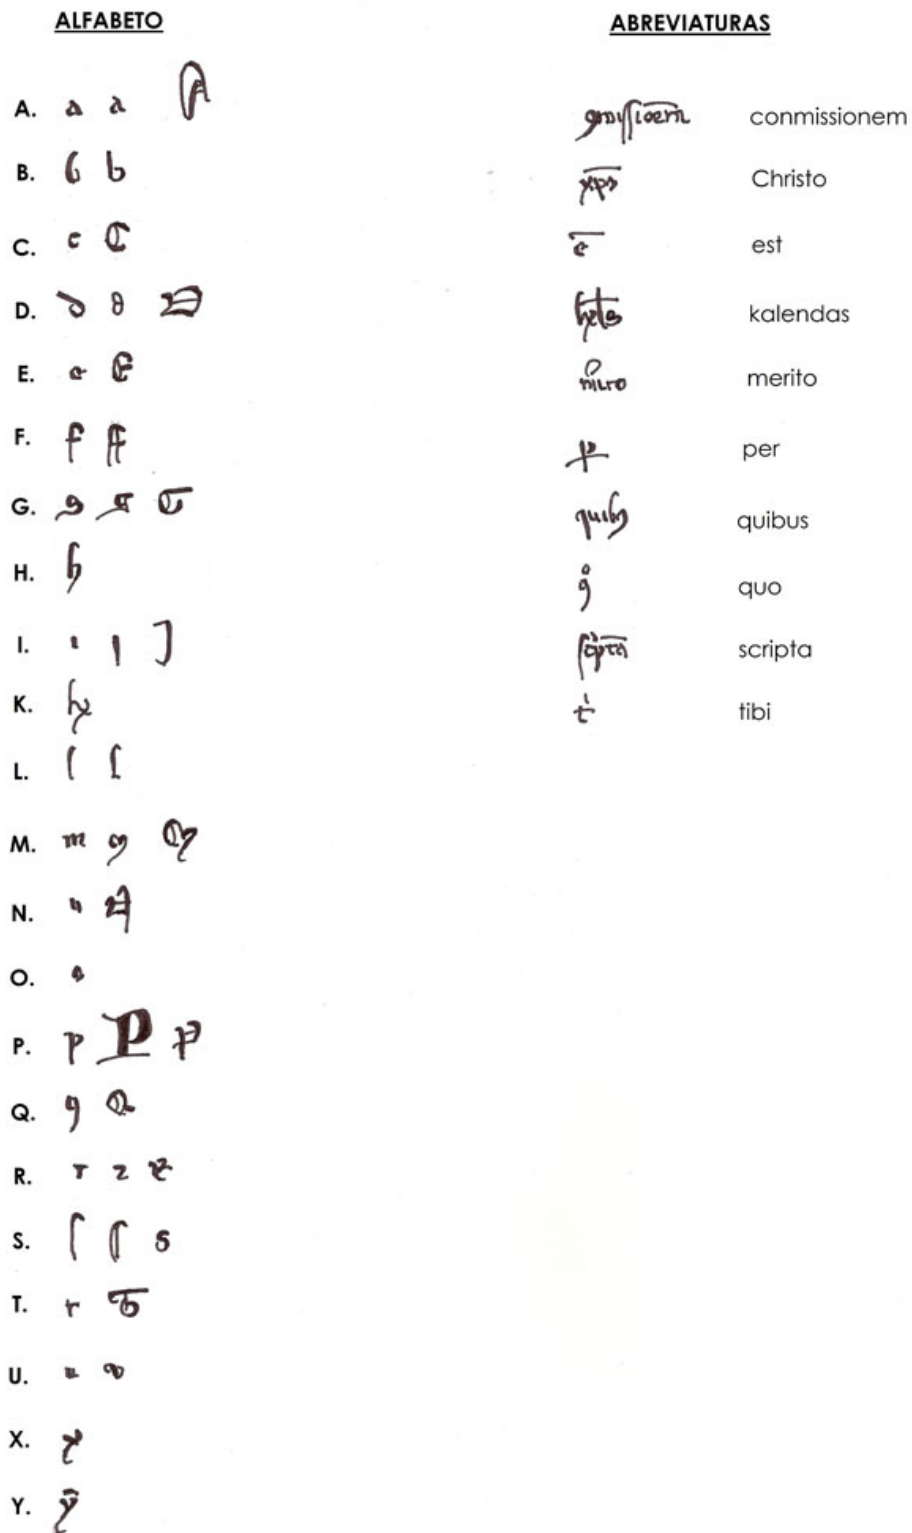 ALFABETO
A. a a A
B. b b
C. c C
D. d d D
E. e E
F. f F
G. g g G
H. h
I. i i I
K. k
L. l l
M. m m M
N. n N
O. o
P. p P P
Q. q Q
R. r r r
S. s s s
T. t T
U. u v
X. x
Y. y
ABREVIATURAS
conmissionem
xpo Christo
e est
kls kalendas
mito merito
p per
quib quibus
q quo
scipta scripta
t tibi